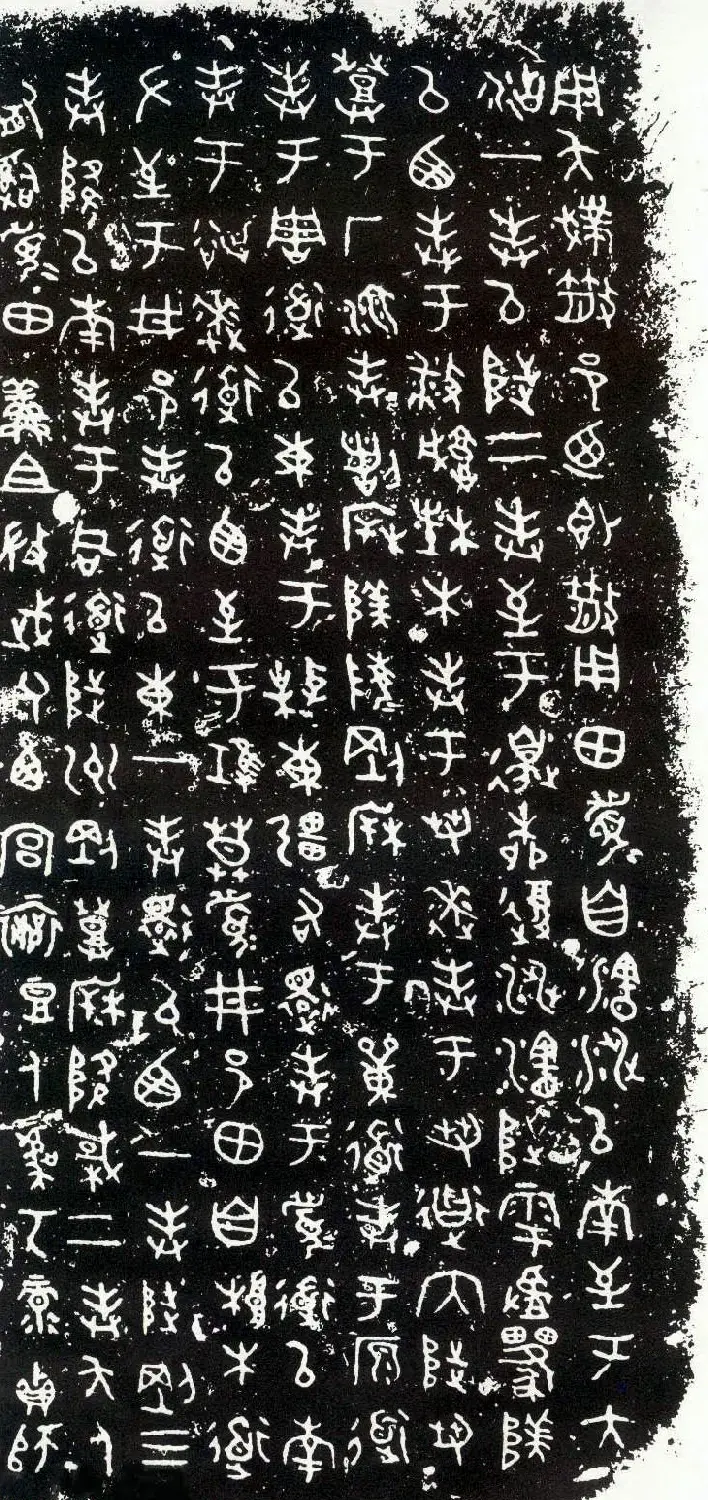 用夨撲散邑迺即散用田眉自瀗涉以南至于大
沽一封以陟二封至于邊柳復涉瀗陟雩䧅
以西封于播城楮木封于芻逨封于芻道內陟芻
登于厂湶封諸柝䧅陵剛柝封于道封于原道
封于周道以東封于棹東疆右還封于眉道以南
封于逨道以西至于堆莫眉井邑田自根木道
左至于井邑封道以東一封還以西一封陟剛三
封降以南封于同道陟州剛登柝降棫二封夨人
有司眉田鮮且微武父西宮襄豆人虞丂彔貞師